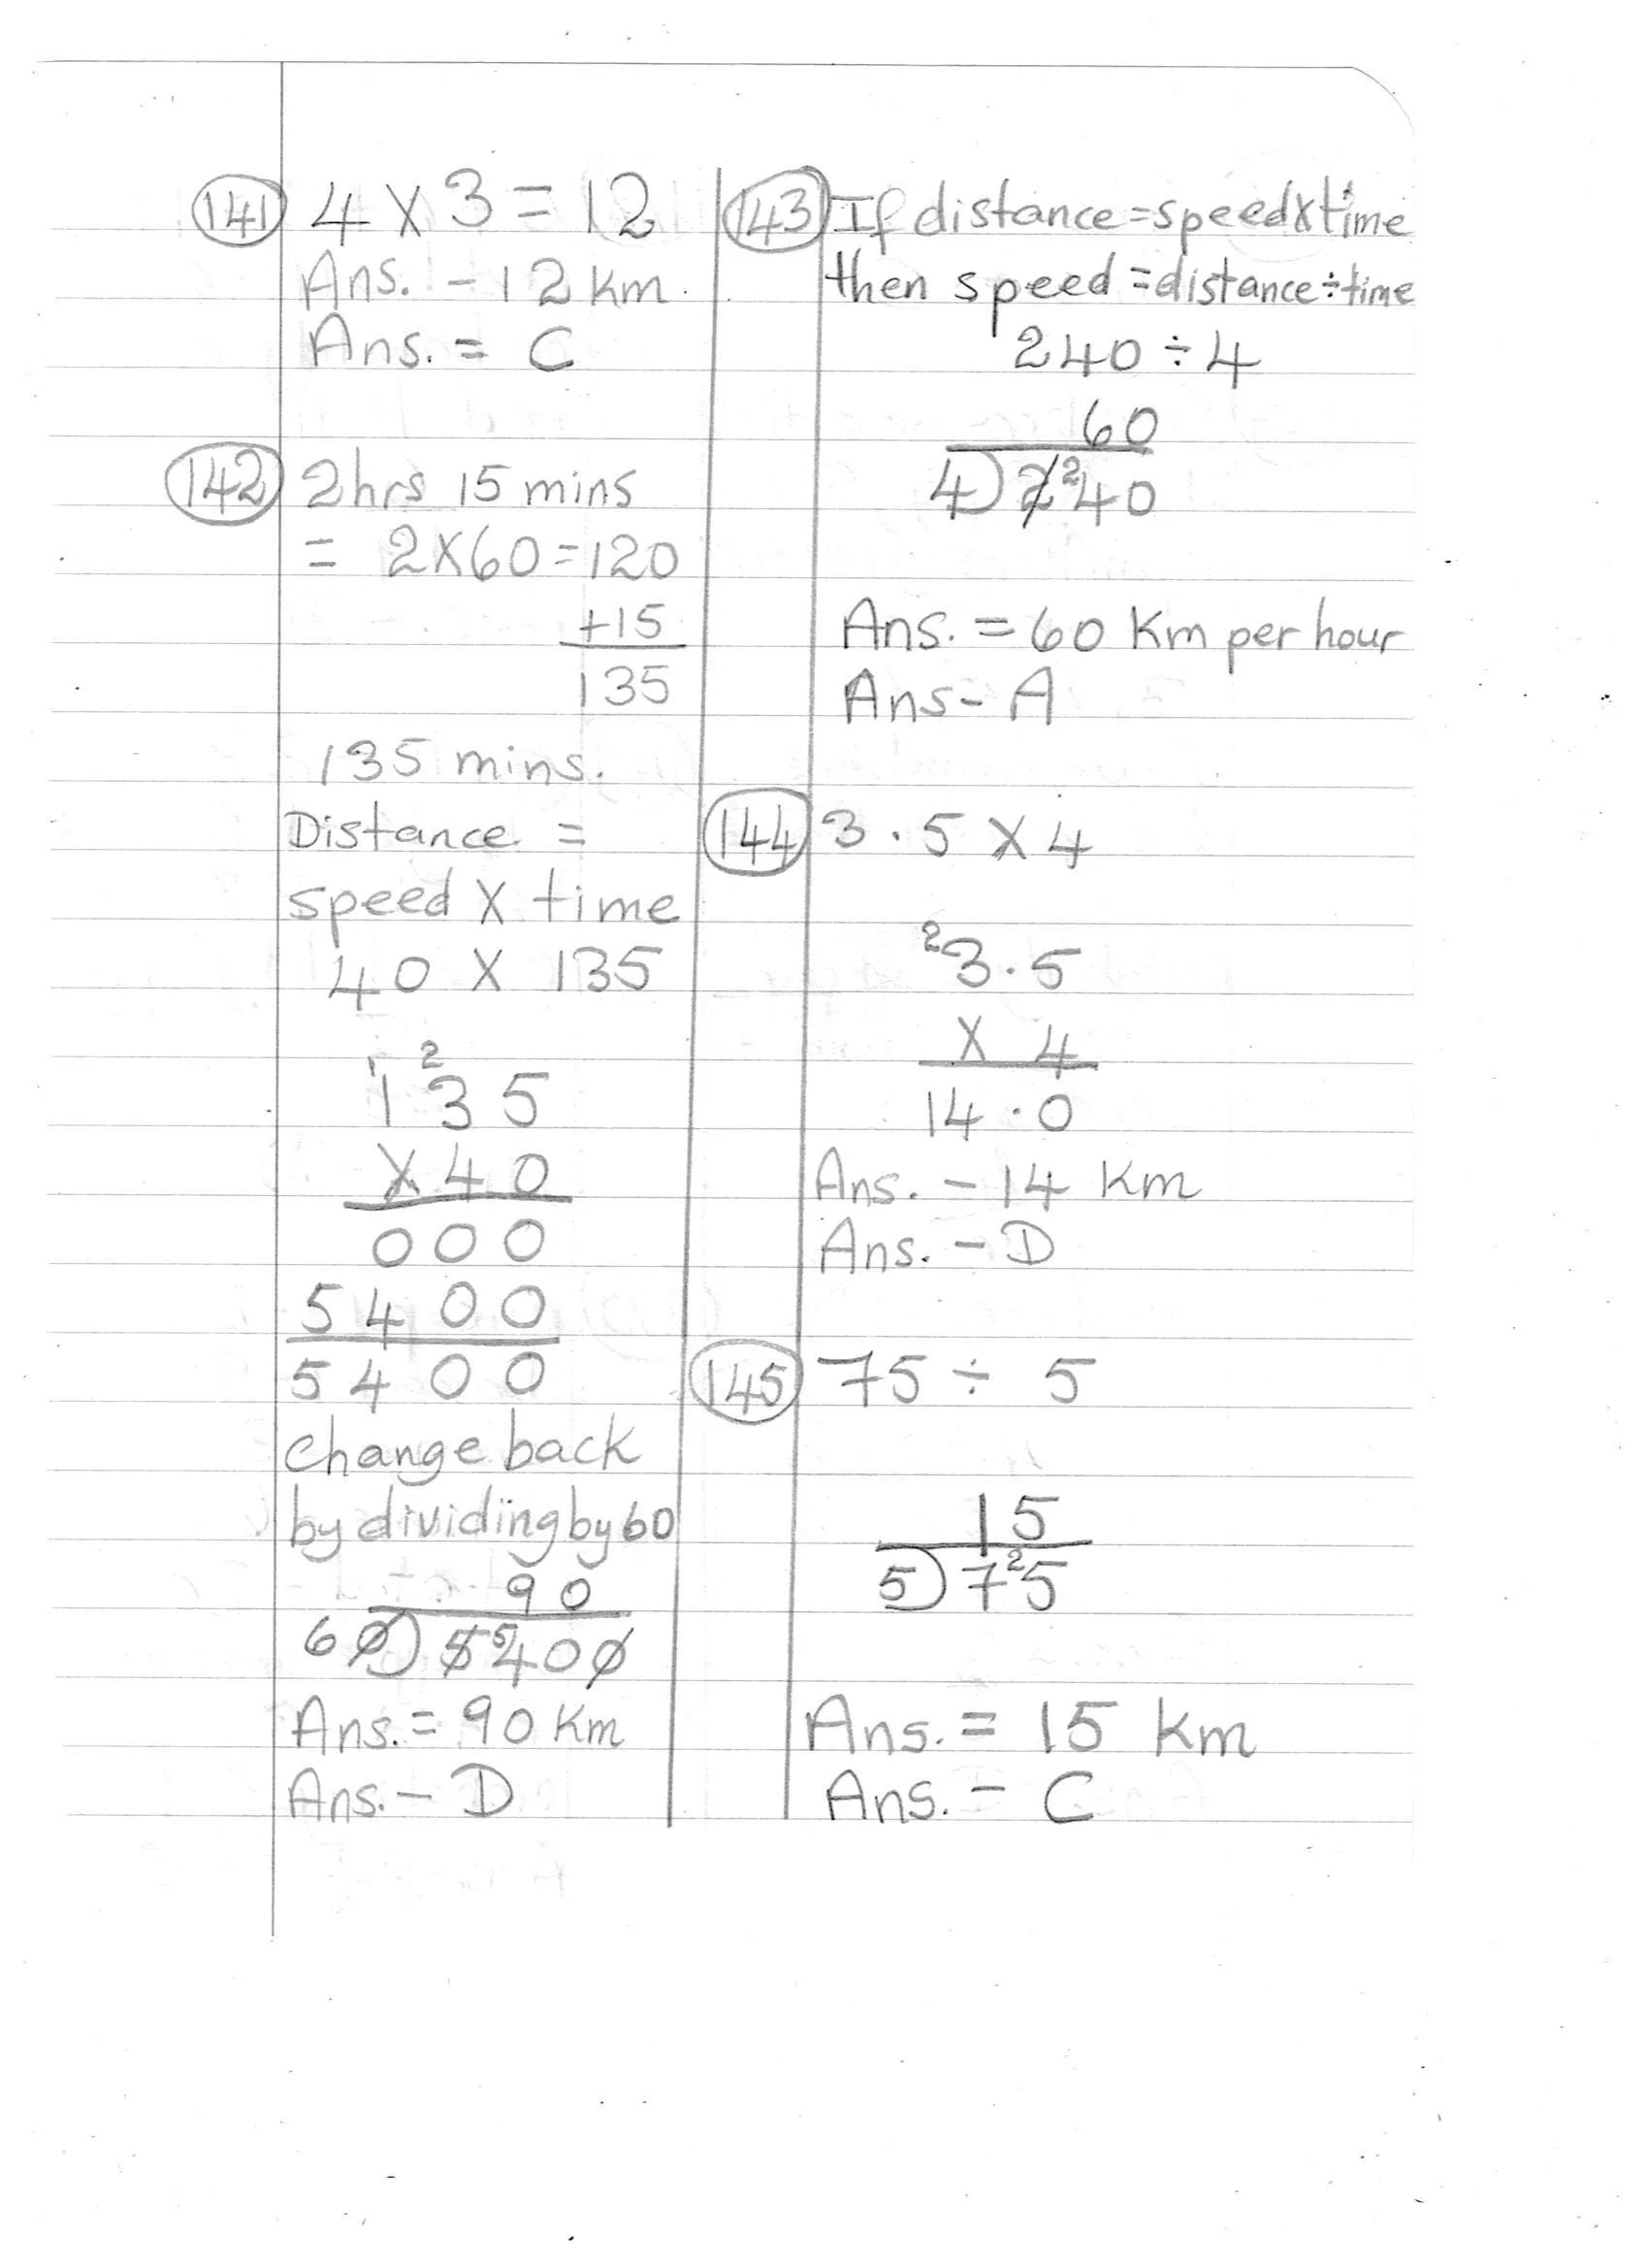 141 4 X 3 = 12
Ans. - 12 km.
Ans. = C
142 2hrs 15 mins
= 2X60=120
+15
135
135 mins.
Distance =
speed X time
40 X 135
1 2
135
X40
000
5400
5400
Change back
by dividing by 60
90
60)5 5400
Ans. = 90 Km
Ans. - D
143 If distance=speedxtime
then speed=distance÷time
240 ÷ 4
60
4)2 240
Ans. = 60 Km per hour
Ans - A
144 3.5 X 4
2 3.5
X 4
14.0
Ans. - 14 Km
Ans. - D
145 75 ÷ 5
15
5)7 25
Ans. = 15 km
Ans. - C